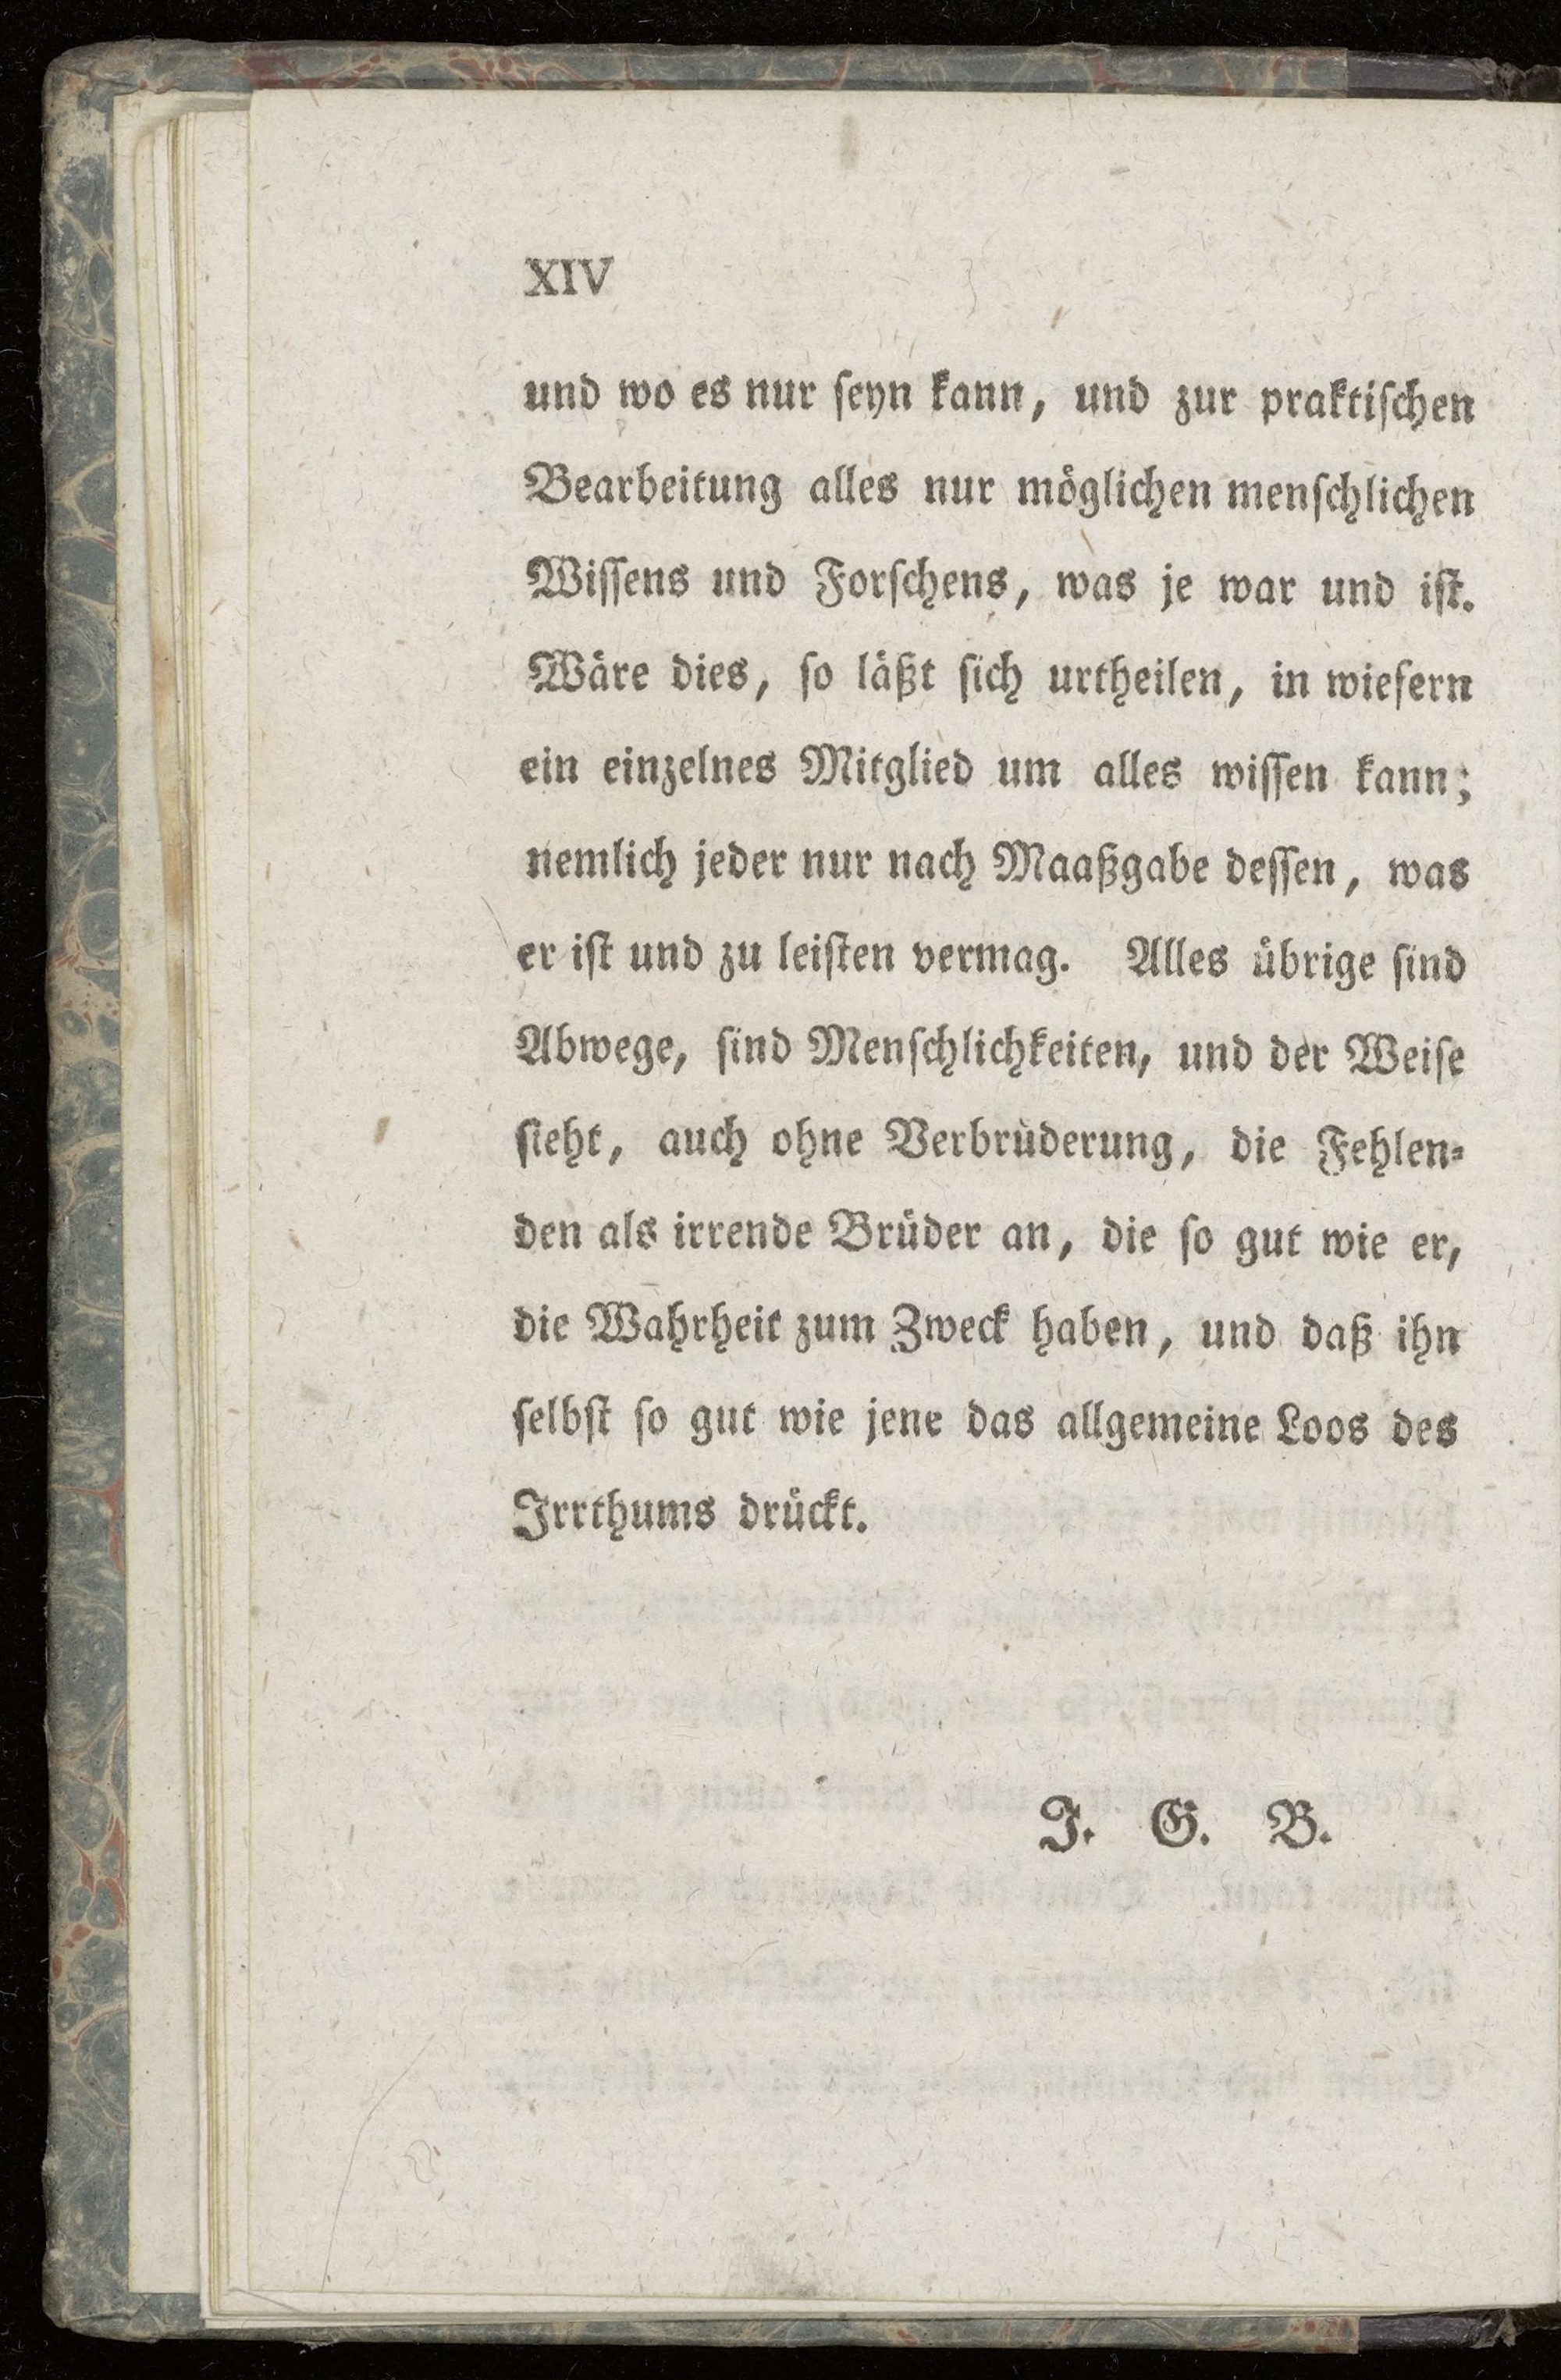 XIV
und wo es nur ſeyn kann, und zur praktiſchen
Bearbeitung alles nur möglichen menſchlichen
Wiſſens und Forſchens, was je war und iſt.
Wäre dies, ſo läßt ſich urtheilen, in wiefern
ein einzelnes Mitglied um alles wiſſen kann;
nemlich jeder nur nach Maaßgabe deſſen, was
er iſt und zu leiſten vermag. Alles übrige ſind
Abwege, ſind Menſchlichkeiten, und der Weiſe
ſieht, auch ohne Verbrüderung, die Fehlen⸗
den als irrende Brüder an, die ſo gut wie er,
die Wahrheit zum Zweck haben, und daß ihn
ſelbſt ſo gut wie jene das allgemeine Loos des
Irrthums drückt.
J. G. B.